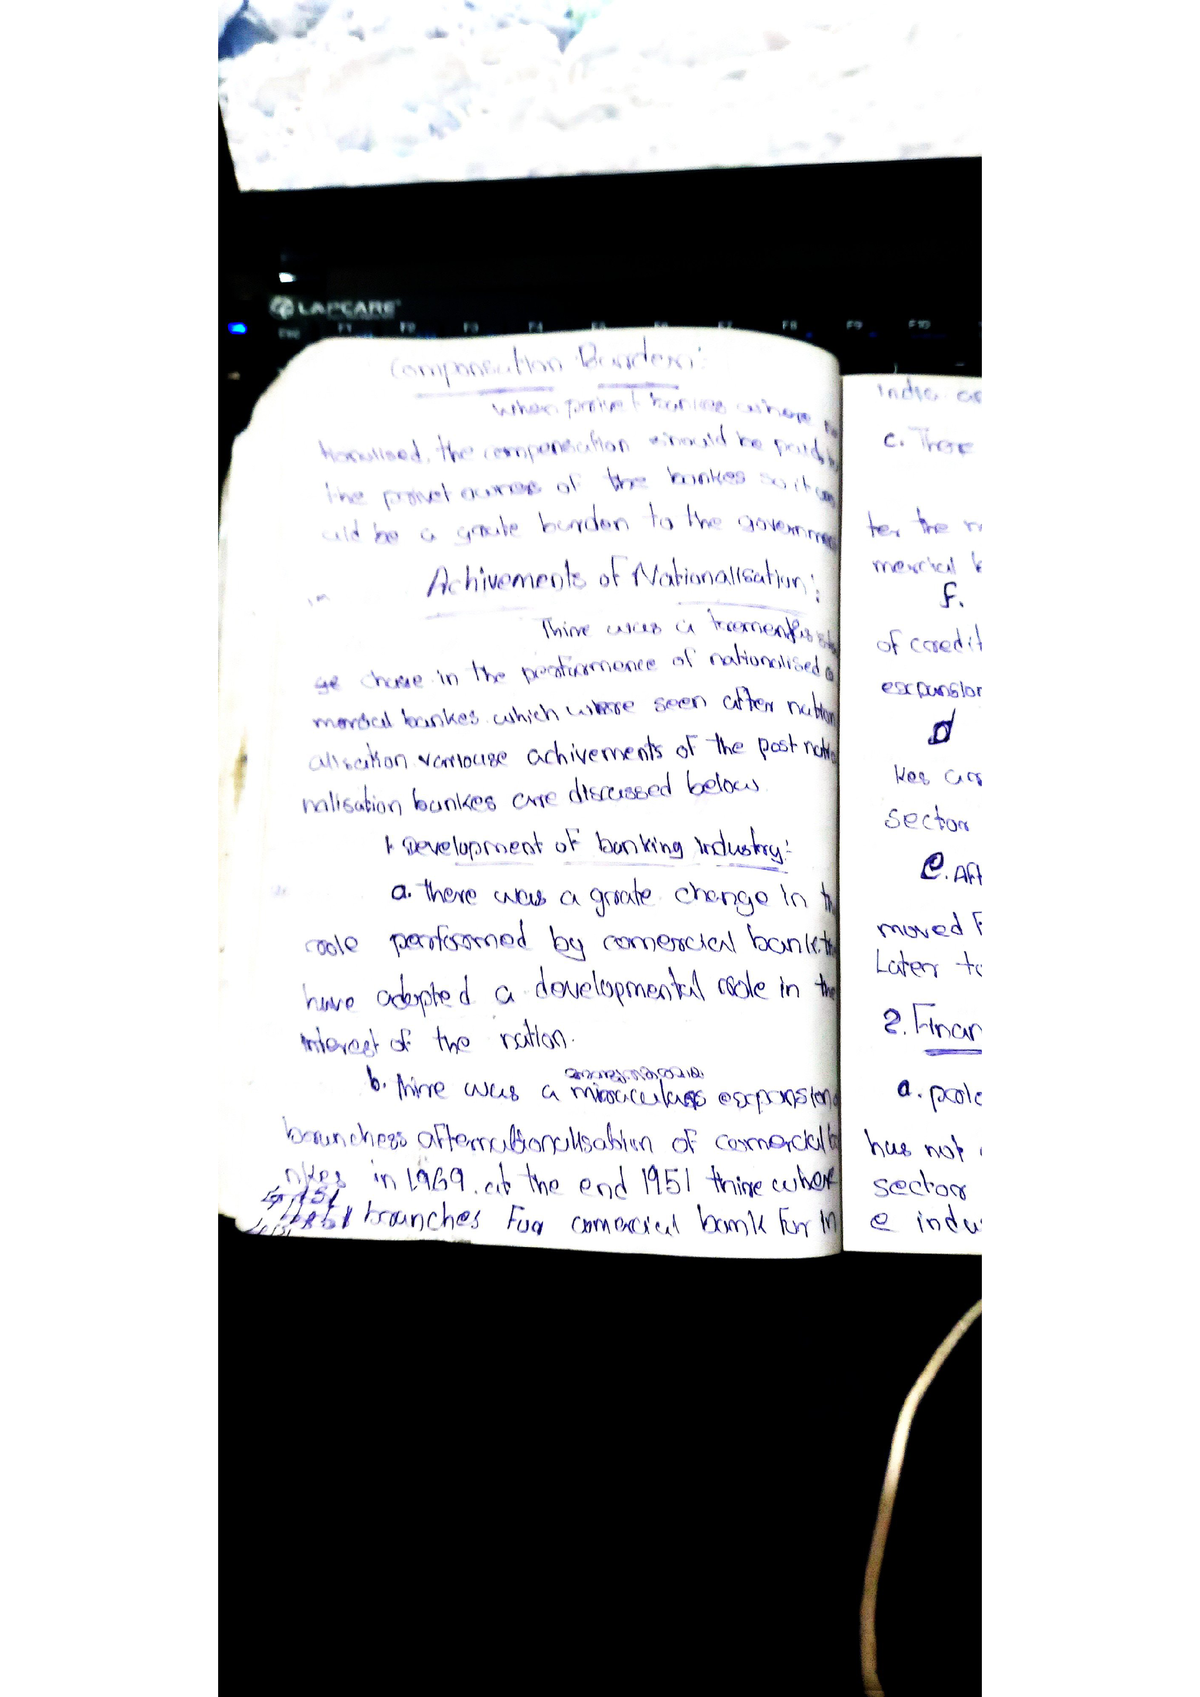 LAPCARE
Esc F1 F2 F3 F4 F5 F6 F7 F8 F9 F10
Compensation Burden:
When privet bankes where
tionalised, the compensation should be paid
the privet owner of the bankes so it
uld be a grate burden to the governme
Achivements of Nationalisation:
Thire was a
ge in the performence of nationalised
mercial bankes which where seen after nation
alisation variouse achivements of the post natio
nalisation bankes are discussed below
1. Development of banking industry:
a. there was a grate change in th
role performed by comercial bank th
have adopted a developmental role in the
interest of the nation.
b. thire was a expansion
braunchess afternationalisation of comercial ba
nkes in 1969. at the end 1951 thire where
branches For comercial bank For In
India
c. There
ter the
mercial
f.
of credit
expansion
d
kes
sector
e. Aft
moved F
Later to
2. Finan
a.
has not
sector
e indu